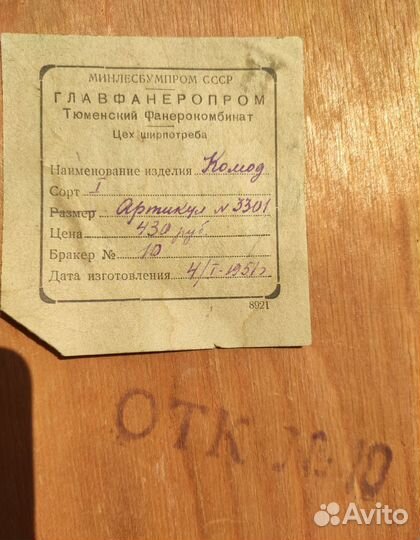 МИНЛЕСБУМПРОМ СССР
ГЛАВФАНЕРОПРОМ
Тюменский Фанерокомбинат
Цех ширпотреба
Наименование изделия Комод
Сорт I
Размер Артикул № 3301
Цена 430 руб.
Бракер № 10
Дата изготовления 4/I-1951г
8921
ОТК № 10
Avito